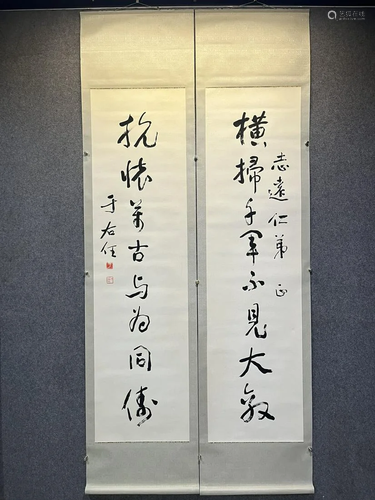 橫掃千軍不見大敵
志遠仁弟 正
抗懷萬古与為同儔
于右任
艺狐在线